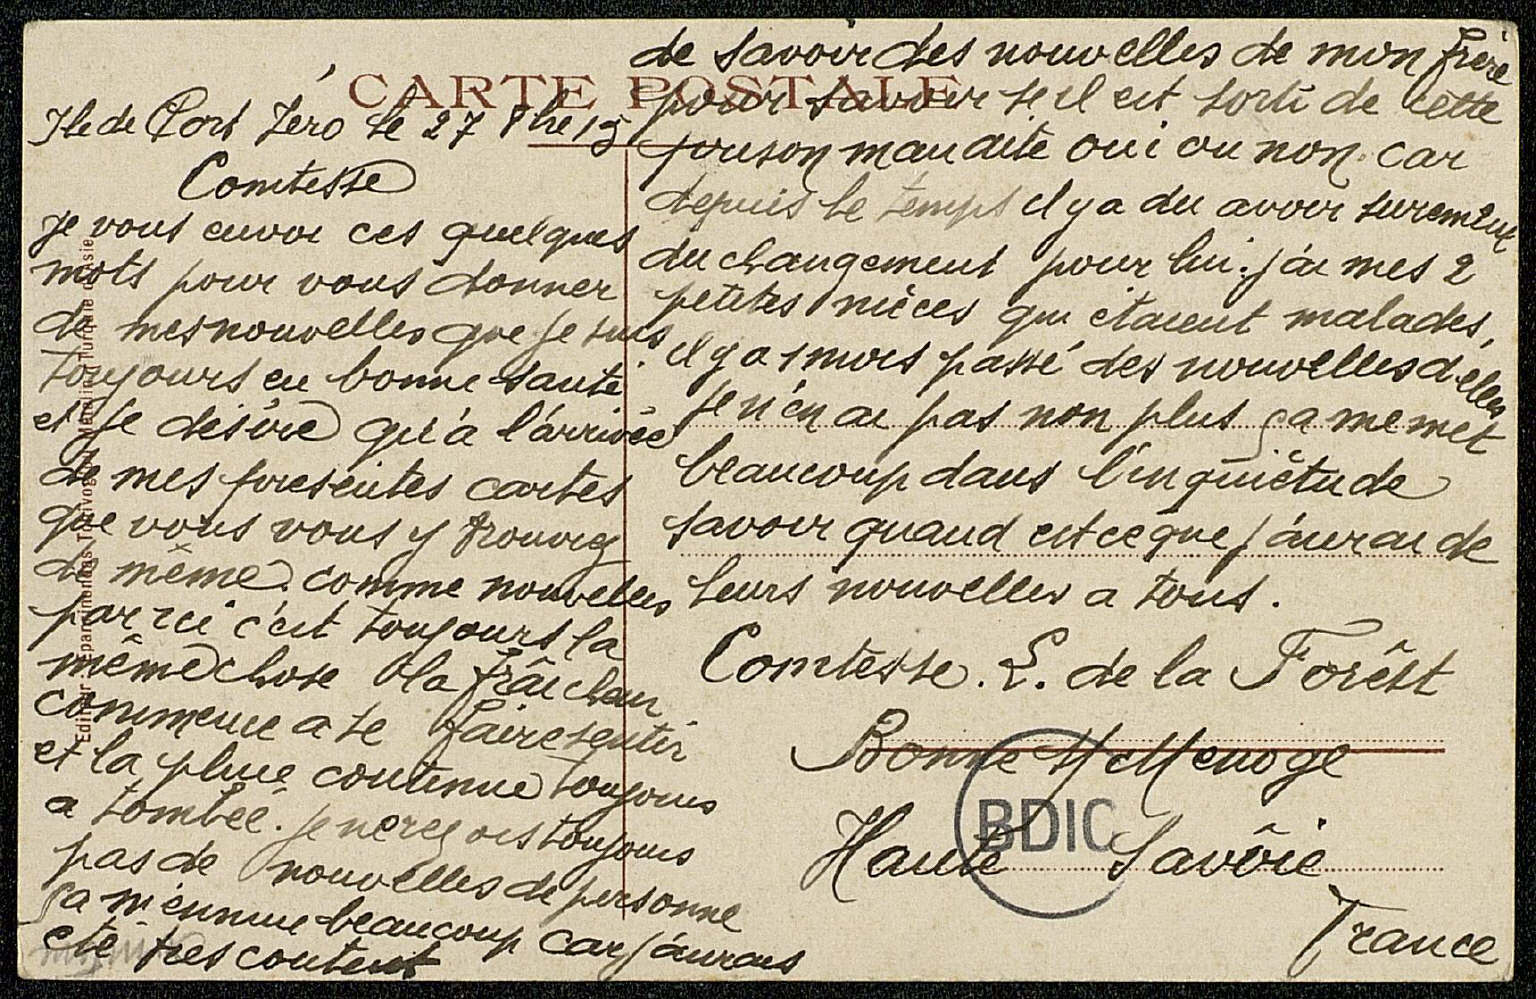 CARTE POSTALE
Ile de Port Jero le 27 8bre 15
Comtesse
je vous envoi ces quelques
mots pour vous donner
de mes nouvelles que je suis
toujours en bonne santé
et je désire qu'à l'arrivée
de mes presentes cartes
que vous vous y trouviez
de même. comme nouvelles
par ici c'est toujours la
même chose la fraîcheur
commence a se faire sentir
et la pluie continue toujours
a tombée. je ne reçois toujours
pas de nouvelles de personne
ça m'ennuie beaucoup car j'aurais
été très content
de savoir des nouvelles de mon frère
pour savoir se il est sorti de cette
prison maudite oui ou non. car
depuis le temps il y a du avoir surement
du changement pour lui. j'ai mes 2
petites nièces qui étaient malades,
il y a 1 mois passé des nouvelles d'elles
je n'en ai pas non plus ça me met
beaucoup dans l'inquiétude
savoir quand est ce que j'aurai de
leurs nouvelles a tous.
Comtesse. L. de la Forêst
Bonne Menoge
Haute Savôie
France
BDIC